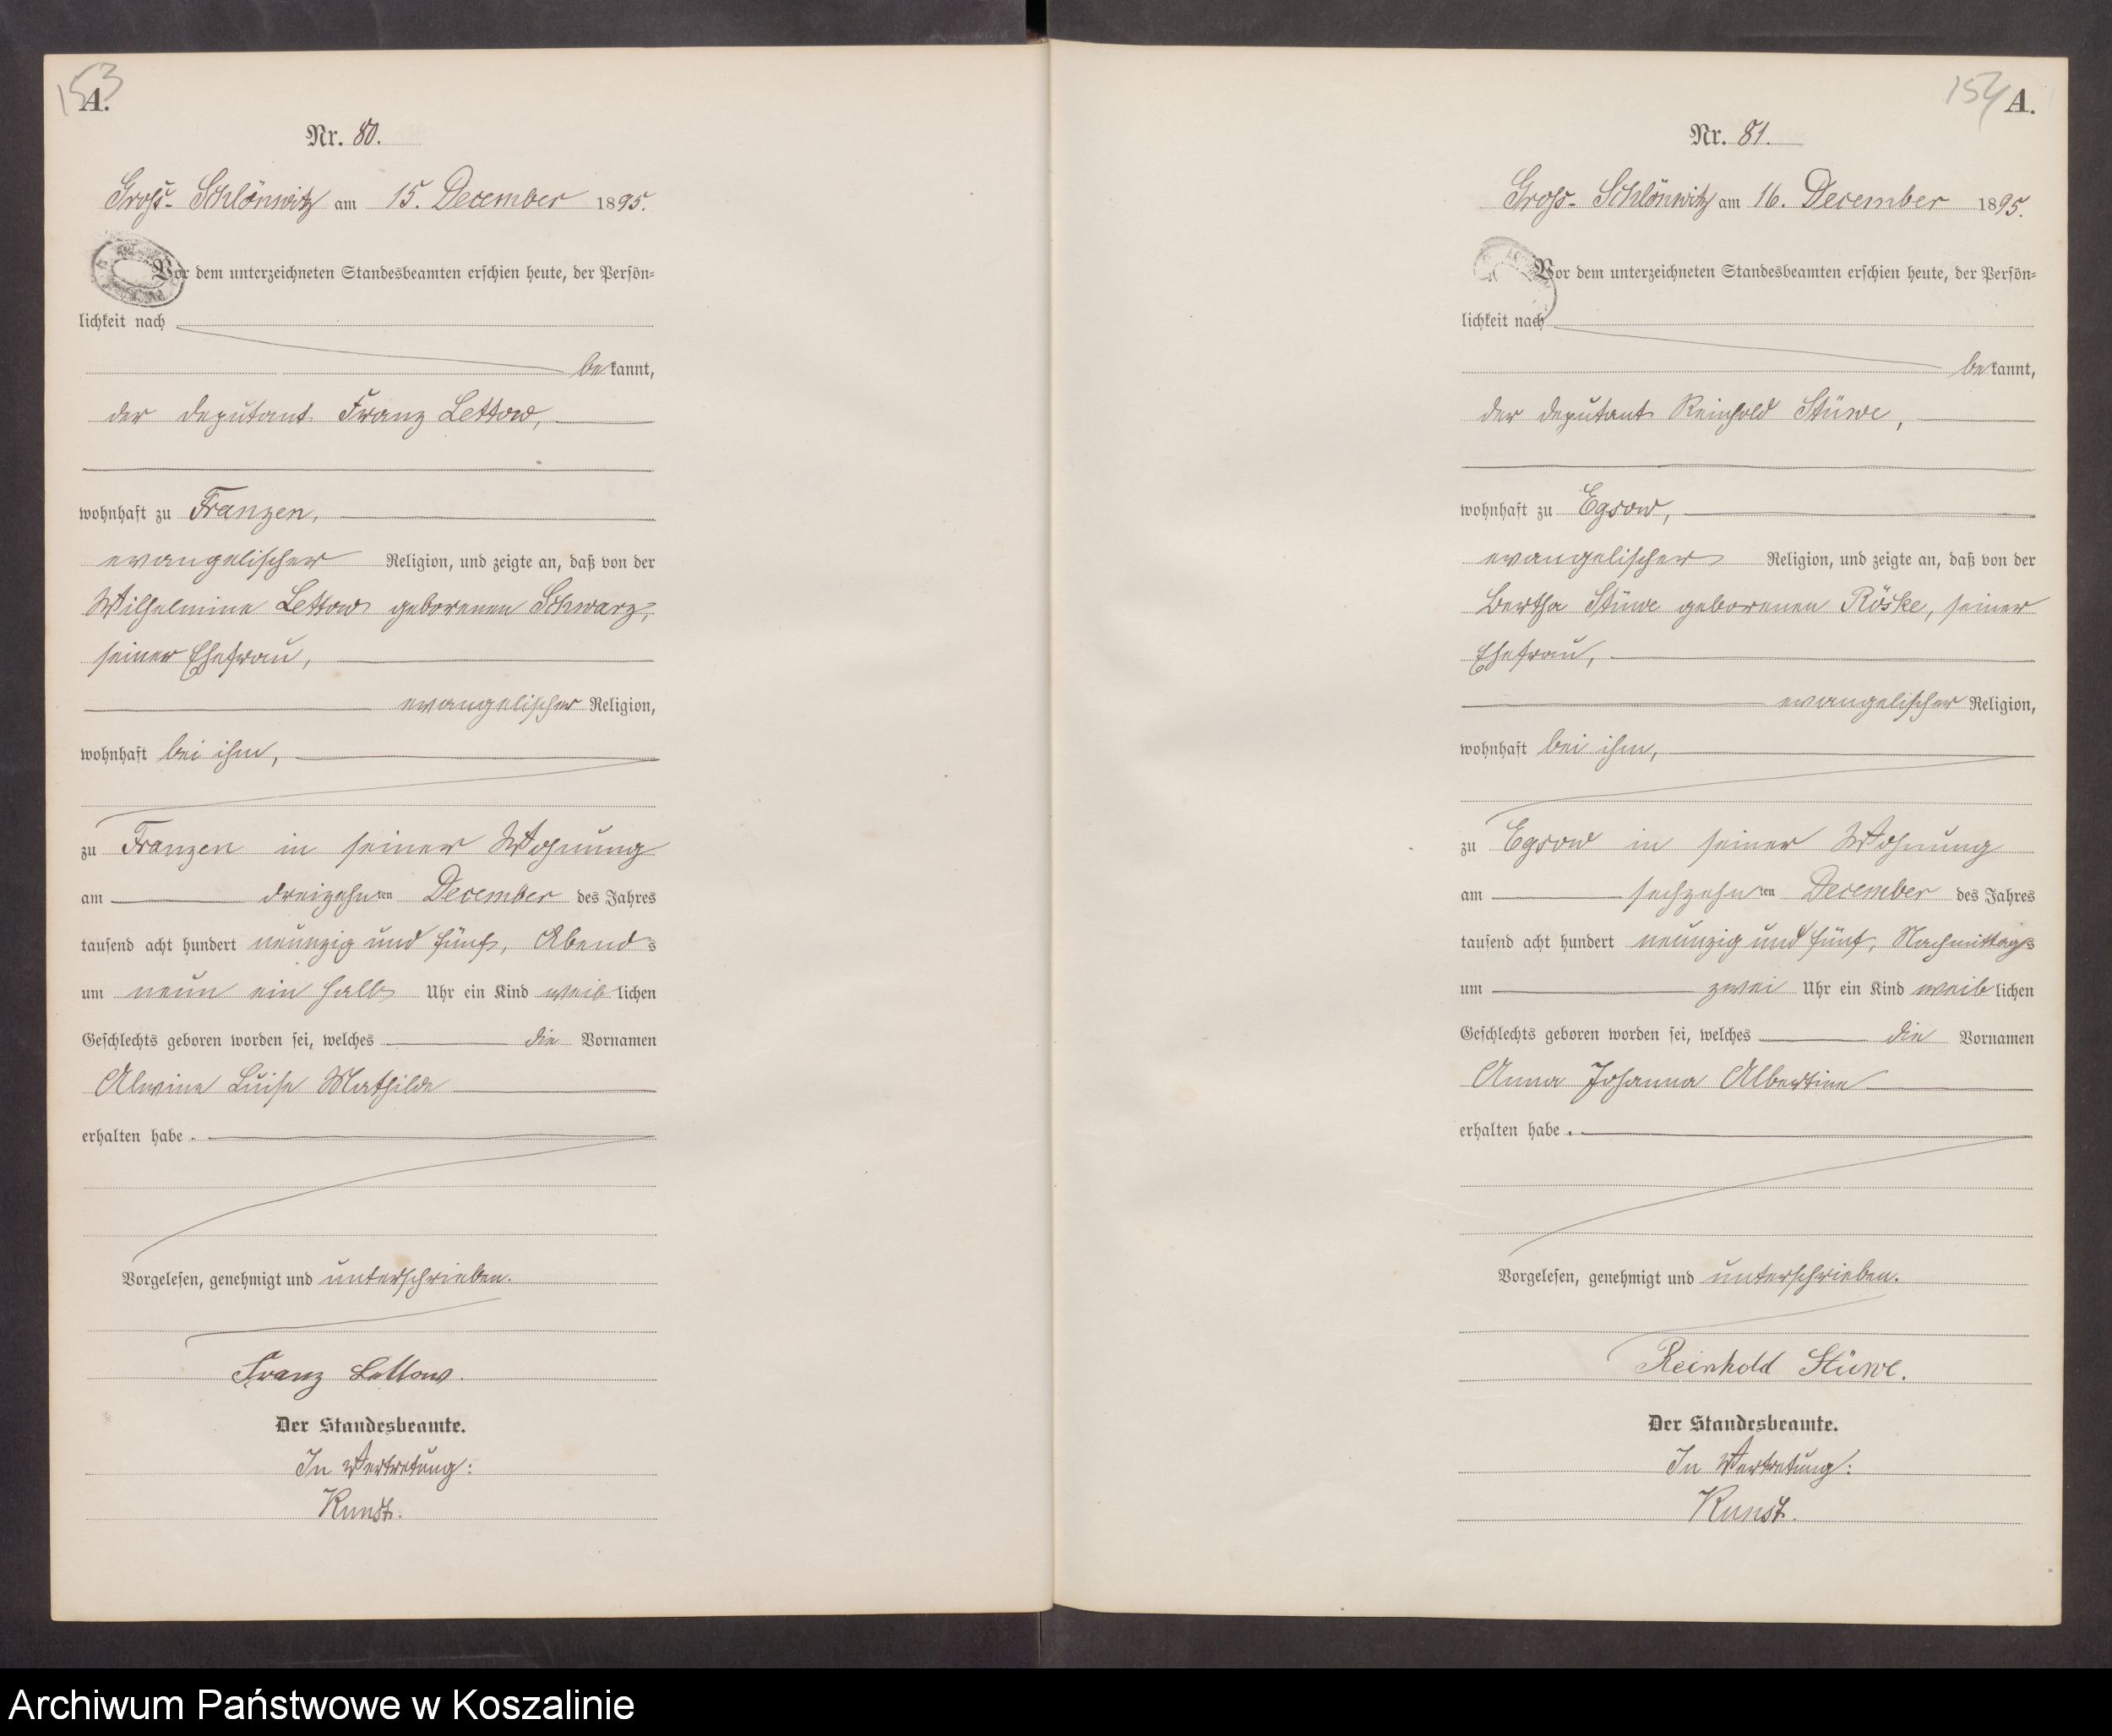 153
A.
Nr. 80.
Groß-Schlönwitz am 15. December 1895.
Vor dem unterzeichneten Standesbeamten erschien heute, der Persön-
lichkeit nach
bekannt,
der Deputant Franz Lettow,
wohnhaft zu Franzen,
evangelischer Religion, und zeigte an, daß von der
Wilhelmine Lettow geborenen Schwarz,
seiner Ehefrau,
evangelischer Religion,
wohnhaft bei ihm,
zu Franzen in seiner Wohnung
am dreizehnten December des Jahres
tausend acht hundert neunzig und fünf, Abends
um neun ein halb Uhr ein Kind weiblichen
Geschlechts geboren worden sei, welches die Vornamen
Alwine Luise Mathilde
erhalten habe.
Vorgelesen, genehmigt und unterschrieben.
Franz Lettow.
Der Standesbeamte.
In Vertretung:
Kunst.
154
A.
Nr. 81.
Groß-Schlönwitz am 16. December 1895.
Vor dem unterzeichneten Standesbeamten erschien heute, der Persön-
lichkeit nach
bekannt,
der Deputant Reinhold Stüwe,
wohnhaft zu Egsow,
evangelischer Religion, und zeigte an, daß von der
Bertha Stüwe geborenen Röske, seiner
Ehefrau,
evangelischer Religion,
wohnhaft bei ihm,
zu Egsow in seiner Wohnung
am sechzehnten December des Jahres
tausend acht hundert neunzig und fünf, Nachmittags
um zwei Uhr ein Kind weiblichen
Geschlechts geboren worden sei, welches die Vornamen
Anna Johanna Albertine
erhalten habe.
Vorgelesen, genehmigt und unterschrieben.
Reinhold Stüwe.
Der Standesbeamte.
In Vertretung:
Kunst.
Archiwum Państwowe w Koszalinie